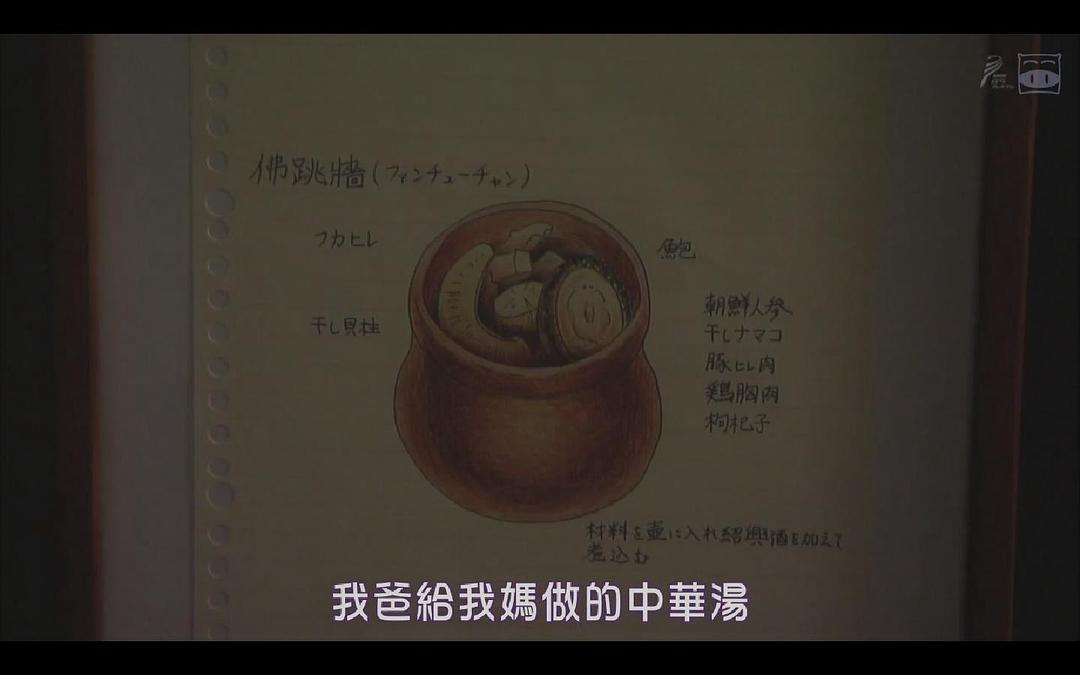 佛跳牆(ファンチューチャン)
フカヒレ
鮑
干し貝柱
朝鮮人参
干しナマコ
豚ヒレ肉
鶏胸肉
枸杞子
材料を壷に入れ紹興酒を加えて
煮込む
我爸給我媽做的中華湯